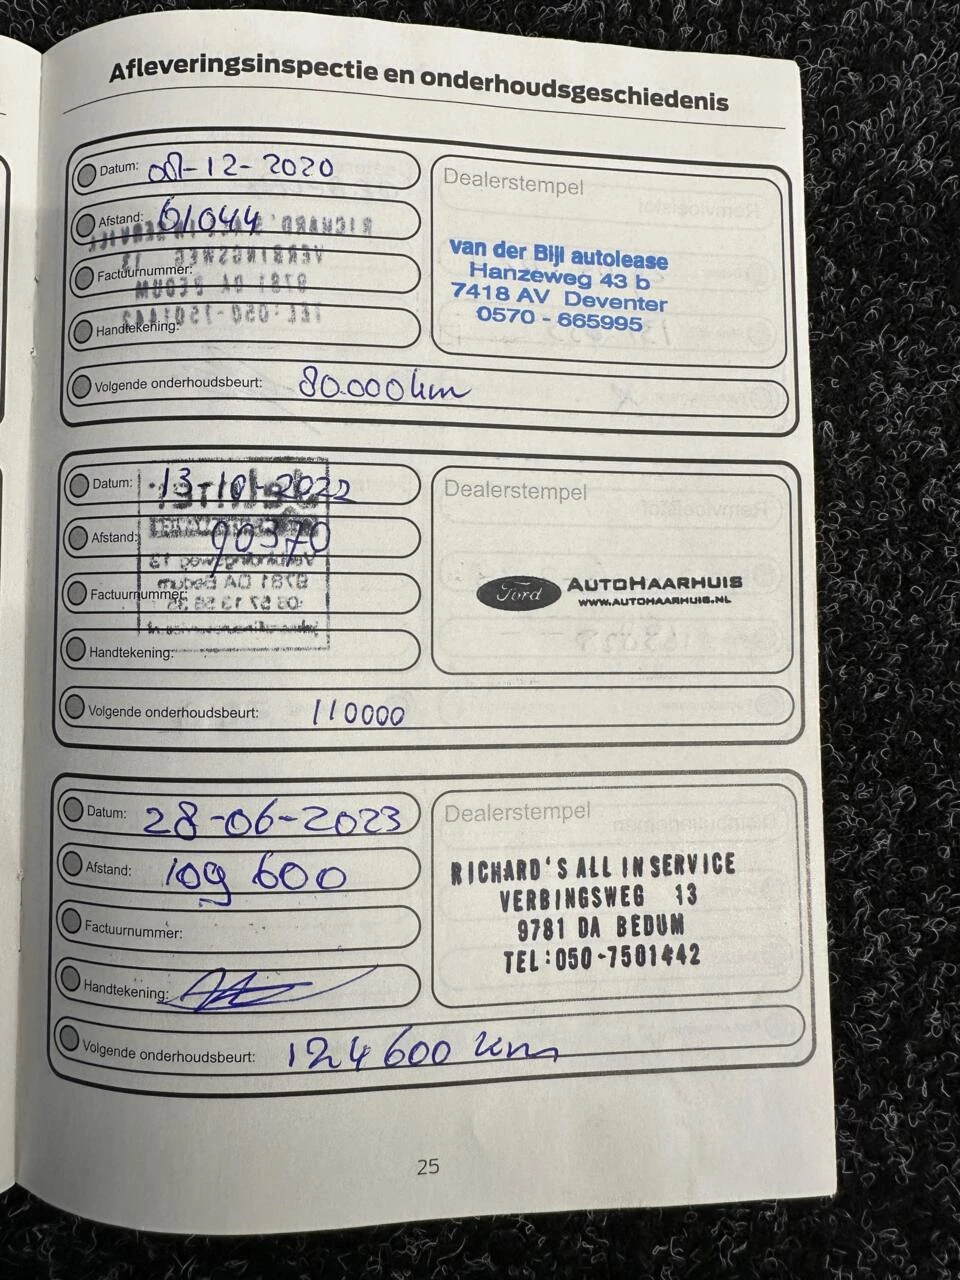 Afleveringsinspectie en onderhoudsgeschiedenis
Datum: 08-12-2020
Afstand: 61044
Factuurnummer:
Handtekening:
Volgende onderhoudsbeurt: 80.000 km
Dealerstempel
van der Bijl autolease
Hanzeweg 43 b
7418 AV Deventer
0570 - 665995
Datum: 13-10-2022
Afstand: 90370
Factuurnummer:
Handtekening:
Volgende onderhoudsbeurt: 110000
Dealerstempel
Ford AUTOHAARHUIS
WWW.AUTOHAARHUIS.NL
Datum: 28-06-2023
Afstand: 109 600
Factuurnummer:
Handtekening:
Volgende onderhoudsbeurt: 124 600 km
Dealerstempel
RICHARD'S ALL IN SERVICE
VERBINGSWEG 13
9781 DA BEDUM
TEL:050-7501442
25